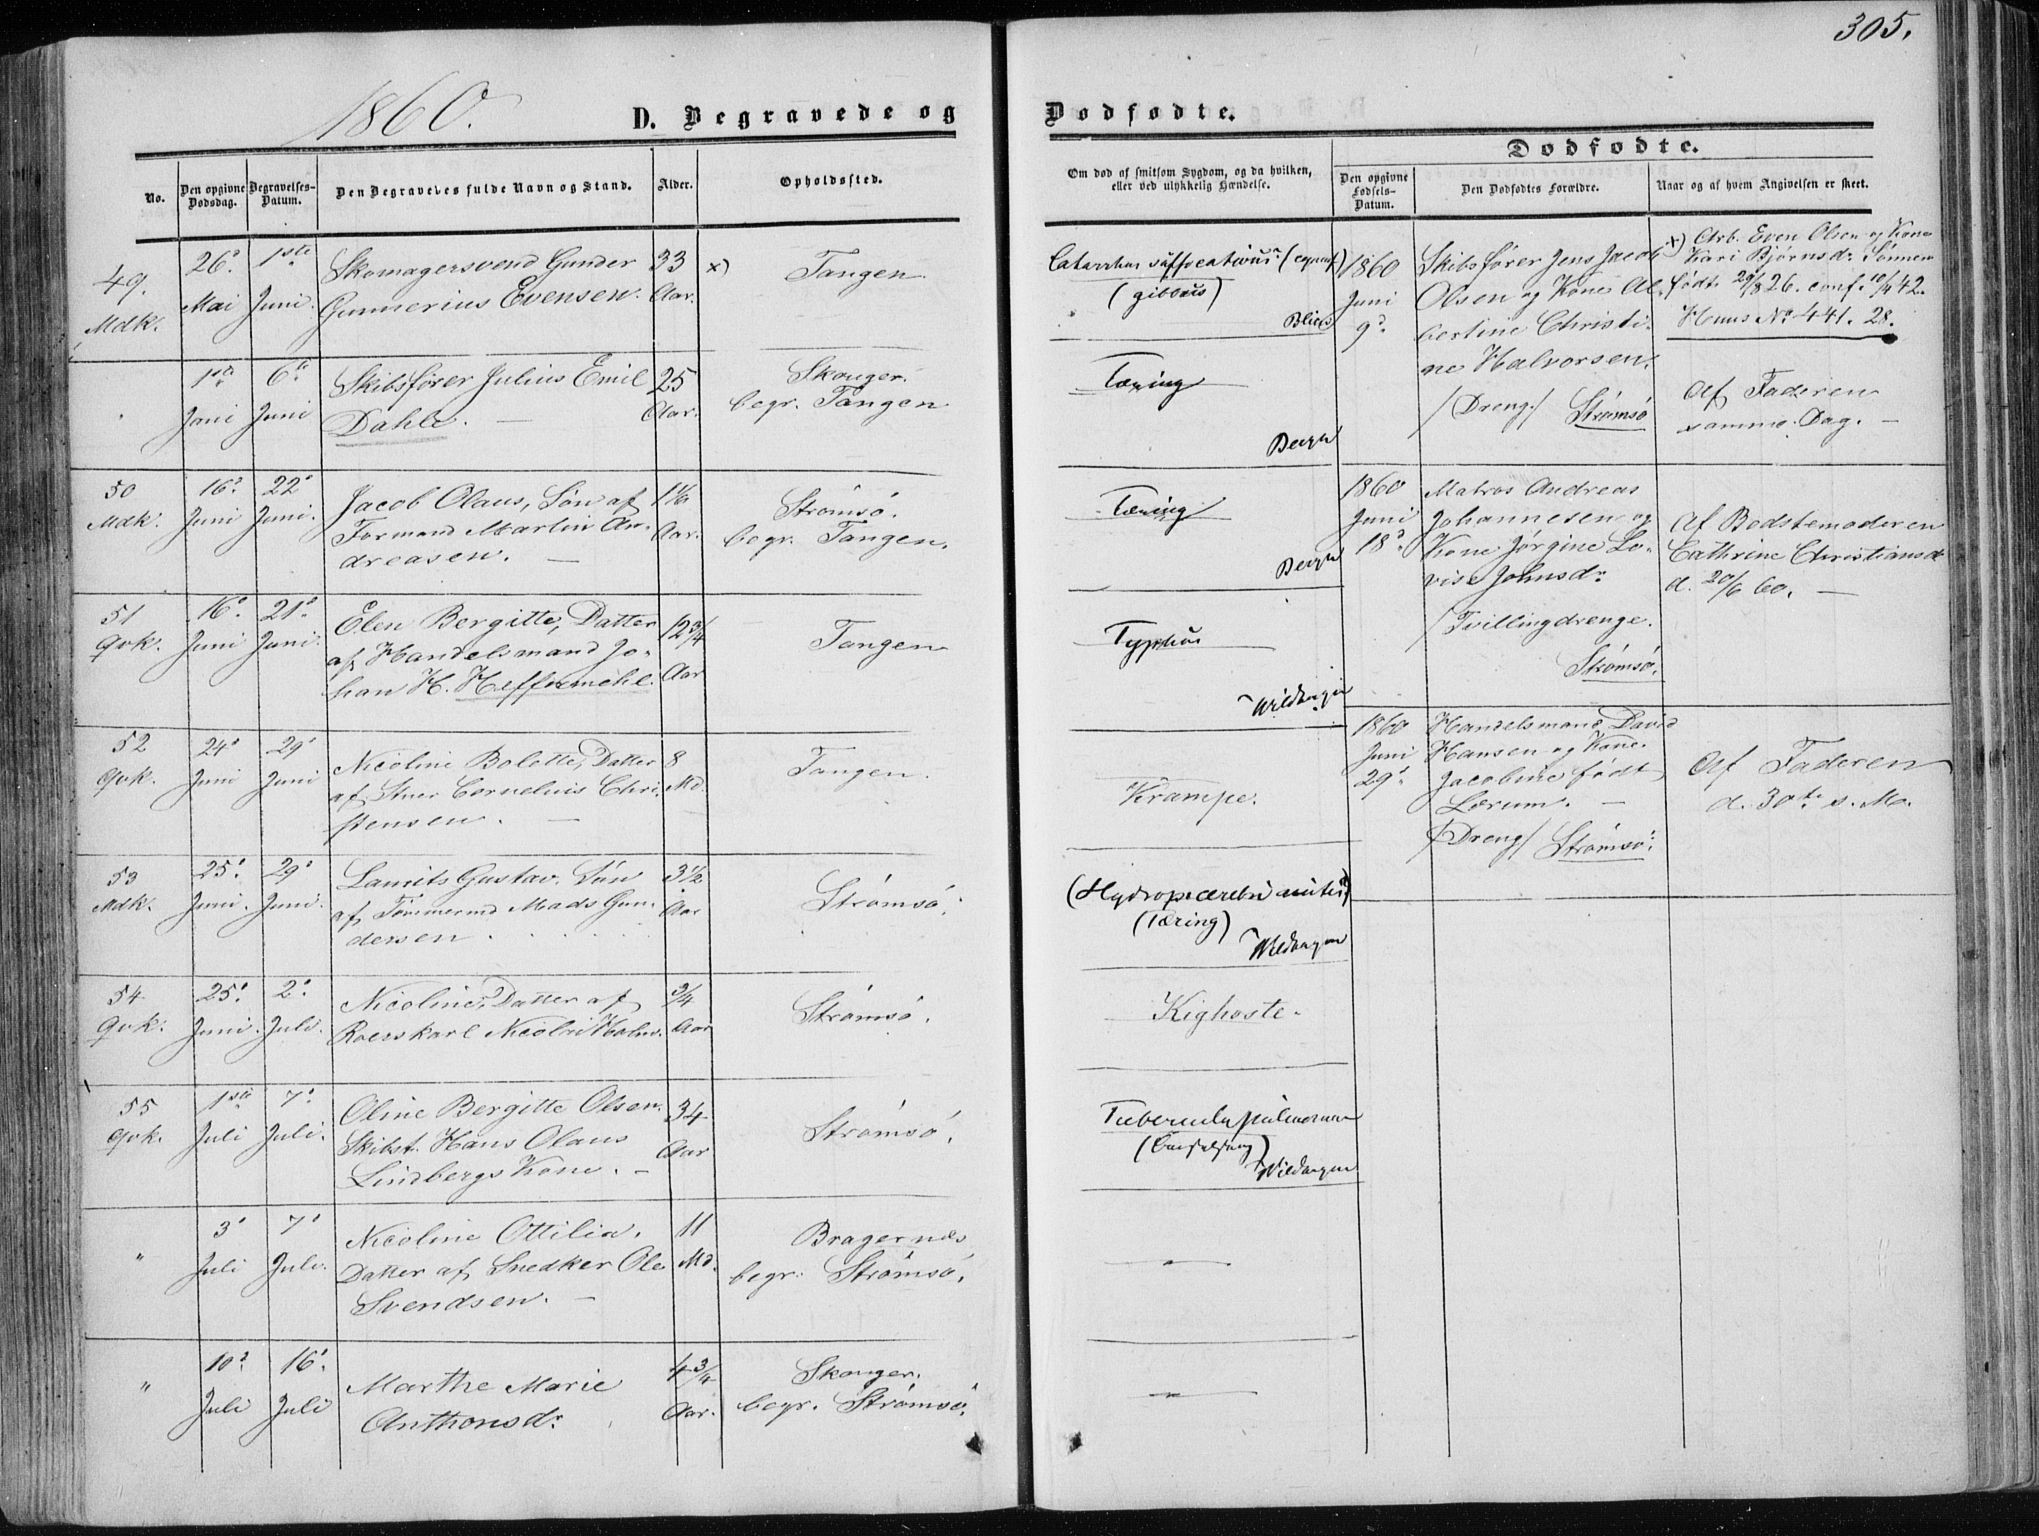 305.
1860.
D. Begravede og
Dødfødte.
No.
Den opgivne Dødsdag.
Begravelses-Datum.
Den Begravedes fulde Navn og Stand.
Alder.
Opholdssted.
Om død af smitsom Sygdom, og da hvilken, eller ved ulykkelig Hændelse.
Dødfødte.
Den opgivne Fødsels-Datum.
Den Dødfødtes Forældre.
Naar og af hvem Angivelsen er skeet.
49.
Mdk.
26de Mai
1ste Juni
Skomagersvend Gunder
Gunnerius Evensen.
33 Aar.
x)
Tangen.
Catarrhus suffocativus
(gibbus)
1ste Juni
6te Juni
Skibsfører Julius Emil
Dahle. —
25 Aar.
Skouger.
begr. Tangen
Tæring
50
Mdk.
16de Juni
22de Juni.
Jacob Olaus, Søn af
Formand Martin An-
dreasen. —
1 1/6 Aar.
Strømsø.
begr. Tangen.
Tæring
51
Qvk.
16de Juni
21de Juni.
Elen Bergitte, Datter
af Handelsmand Jo-
han H. Heffermehl.
12 3/4 Aar
Tangen
Typhus
Wildhagen
52
Qvk.
24de Juni
29de Juni
Nicoline Bolette, Datter
af Stuer Cornelius Chri-
stensen. —
8 Md.
Tangen.
Krampe.
53
Mdk.
25de Juni.
29de Juni.
Laurits Gustav. Søn
af Tømmermd Mads Gun-
dersen
3 1/2 Aar
Strømsø.
(Tæring)
Wildhagen
54
Qvk.
25de Juni.
2de Juli.
Nicoline, Datter af
Roerskarl Nicolai Holm.
3/4 Aar
Strømsø.
Kighoste.
55
Qvk.
1ste Juli
7de Juli.
Oline Bergitte Olsen.
Skibst. Hans Olaus
Lindbergs Kone. —
34 Aar
Strømsø.
Tubercula pulmonum
Wildhagen
"
3de Juli
7de Juli.
Nicoline Ottilia.
Datter af Snedker Ole
Svendsen. —
11 Md.
Bragernæs
begr. Strømsø.
—
"
10de Juli
16de Juli
Marthe Marie
Anthonsdr.
4 3/4 Aar.
Skouger.
begr. Strømsø.
—
1860
Juni
9de
Skibsfører Jens Jacob
Olsen og Kone Al-
bertine Christi-
ne Halvorsen.
/Dreng/ Strømsø
x) Arb. Even Olsen og Kone
Kari Bjørnsdr. Sønnen
født 29/8 26. conf. 10/4 42.
Huus No 441. 28.
Af Faderen
samme Dag. —
1860
Juni
18de
Matros Andreas
Johannesen og
Kone Jørgine Lo-
vise Johnsdr.
/Tvillingdrenge.
Strømsø.
Af Bedstemoderen
Cathrine Christiansdr
d. 20/6 60. —
1860
Juni
29de
Handelsmand David
Hansen og Kone
Jacobine født
Lærum. —
/Dreng/ Strømsø.
Af Faderen
d. 30te s. M.